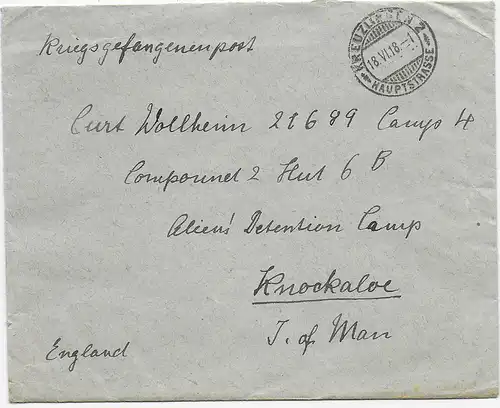 KREUZLINGEN 2
18.VI.18.
HAUPTSTRASSE
Kriegsgefangenenpost
Curt Wollheim 21689 Camp 4
Compound 2 Hut 6 B
Aliens' Detention Camp
Knockaloe
I. of Man
England